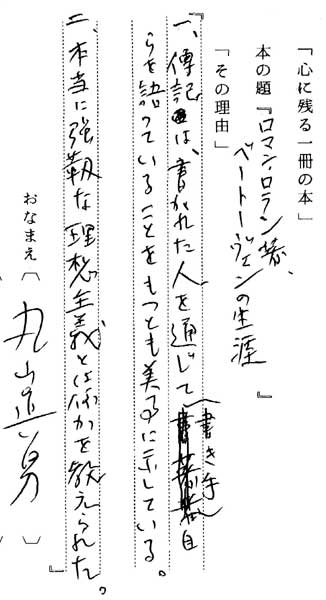 「心に残る一冊の本」
本の題『ロマン・ロラン著、
ベートーヴェンの生涯』
「その理由」
『一、傳記は、書かれた人を通じて書き手自
らを語っていることをもっとも美事に示している。
二、本当に強靱な理想主義とは何かを教えられた。』
おなまえ〔丸山眞男〕